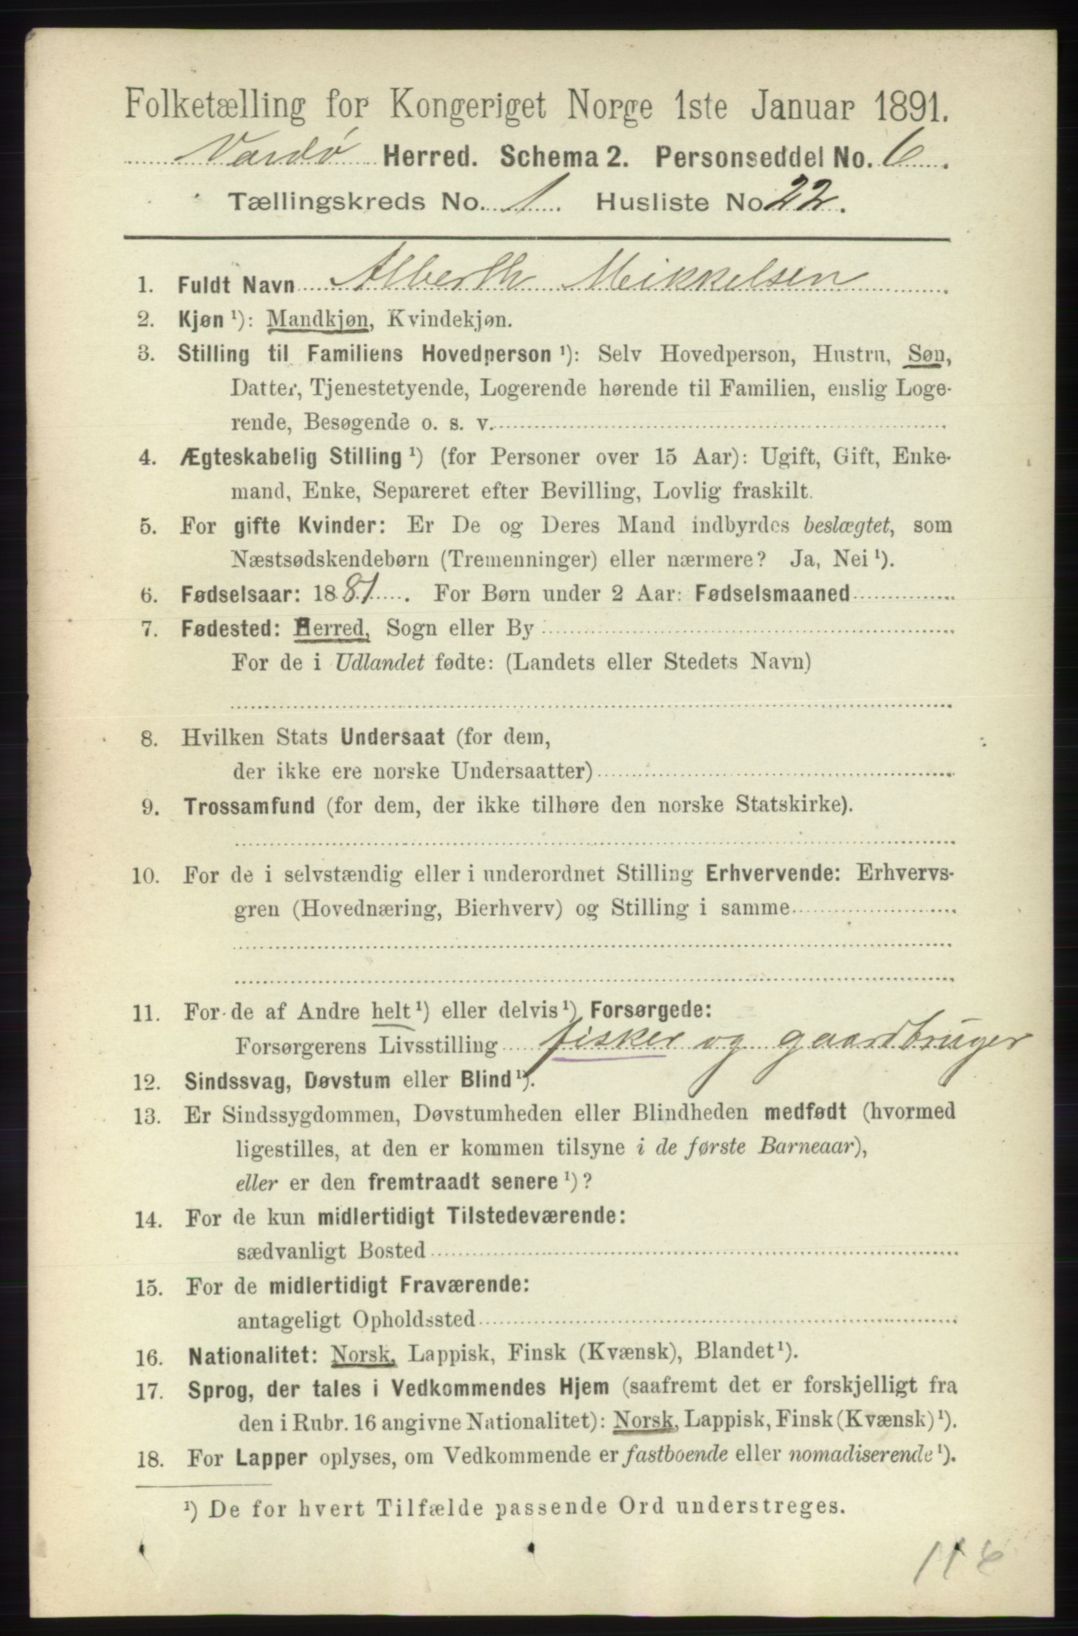 Folketælling for Kongeriget Norge 1ste Januar 1891.
Vardø Herred. Schema 2. Personseddel No. 6.
Tællingskreds No. 1. Husliste No 22.
1. Fuldt Navn Alberth Mikkelsen
2. Kjøn ¹): Mandkjøn, Kvindekjøn.
3. Stilling til Familiens Hovedperson ¹): Selv Hovedperson, Hustru, Søn,
Datter, Tjenestetyende, Logerende hørende til Familien, enslig Loge-
rende, Besøgende o. s. v.
4. Ægteskabelig Stilling ¹) (for Personer over 15 Aar): Ugift, Gift, Enke-
mand, Enke, Separeret efter Bevilling, Lovlig fraskilt.
5. For gifte Kvinder: Er De og Deres Mand indbyrdes beslægtet, som
Næstsødskendebørn (Tremenninger) eller nærmere? Ja, Nei ¹).
6. Fødselsaar: 1881. For Børn under 2 Aar: Fødselsmaaned
7. Fødested: Herred, Sogn eller By
For de i Udlandet fødte: (Landets eller Stedets Navn)
8. Hvilken Stats Undersaat (for dem,
der ikke ere norske Undersaatter)
9. Trossamfund (for dem, der ikke tilhøre den norske Statskirke).
10. For de i selvstændig eller i underordnet Stilling Erhvervende: Erhvervs-
gren (Hovednæring, Bierhverv) og Stilling i samme
11. For de af Andre helt ¹) eller delvis ¹) Forsørgede:
Forsørgerens Livsstilling fisker og gaardbruger
12. Sindssvag, Døvstum eller Blind ¹).
13. Er Sindssygdommen, Døvstumheden eller Blindheden medfødt (hvormed
ligestilles, at den er kommen tilsyne i de første Barneaar),
eller er den fremtraadt senere ¹)?
14. For de kun midlertidigt Tilstedeværende:
sædvanligt Bosted
15. For de midlertidigt Fraværende:
antageligt Opholdssted
16. Nationalitet: Norsk, Lappisk, Finsk (Kvænsk), Blandet ¹).
17. Sprog, der tales i Vedkommendes Hjem (saafremt det er forskjelligt fra
den i Rubr. 16 angivne Nationalitet): Norsk, Lappisk, Finsk (Kvænsk) ¹).
18. For Lapper oplyses, om Vedkommende er fastboende eller nomadiserende ¹).
¹) De for hvert Tilfælde passende Ord understreges.
116